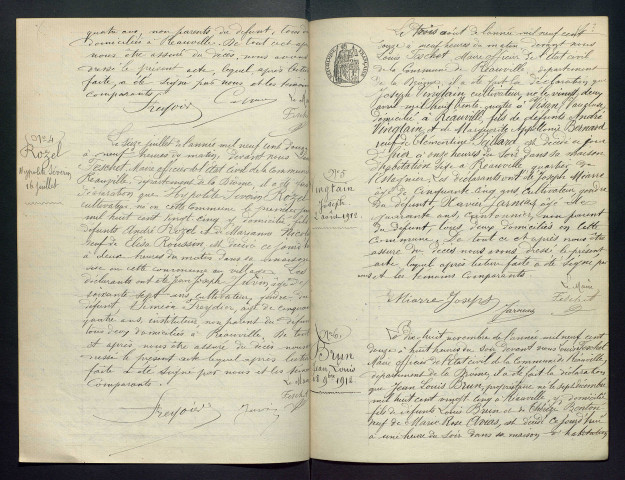 quatre ans, non parents du défunt, tous deux
domiciliés à Réauville. De tout ceci après
nous être assuré du décès, nous avons
dressé le présent acte, lequel après lecture
faite a été signé par nous et les témoins
comparants.
Freydier
Le Maire
Feschet
N° 4
Rozel
Hyppolite Séverin
16 juillet
Le seize juillet de l'année mil neuf cent douze
à neuf heures du matin, devant nous Louis
Feschet, Maire officier de l'état civil de la commune de
Réauville, département de la Drôme, il a été fait la
déclaration que Hyppolite Séverin Rozel
cultivateur né en cette commune le premier
mil huit cent vingt cinq y domicilié fils de
défunts André Rozel et de Marianne
veuf de Elisa Roussin est décédé ce jourd'hui
à deux heures du matin dans sa maison
sise en cette commune au village. Les
déclarants ont été Jean Joseph Juvin âgé de
soixante sept ans, cultivateur, voisin du
défunt, Siméon Freydier, âgé de cinquante
quatre ans, instituteur, non parent du défunt
tous deux domiciliés à Réauville. De tout
et après nous être assuré du décès nous avons
dressé le présent acte lequel après lecture
faite a été signé par nous et les témoins
comparants.
Le Maire
Feschet
Freydier
Juvin
N° 5
Vinglain
Joseph
2 août 1912.
Le trois août de l'année mil neuf cent
douze à neuf heures du matin devant nous
Louis Feschet, Maire officier de l'état civil
de la commune de Réauville, département
de la Drôme, il a été fait la déclaration que
Joseph Vinglain cultivateur né le vingt deux
avril mil huit cent quatre à Visan, Vaucluse,
domicilié à Réauville, fils de défunts André
Vinglain et de Marguerite Appollonie Bernard
veuf de Clementine Jullard, est décédé ce jour
hier à onze heures du soir dans sa maison
d'habitation sise à Réauville quartier de
Les déclarants ont été Joseph Miarre
âgé de cinquante cinq ans cultivateur gendre
du défunt, Xavier Jarnias âgé de
quarante ans, cantonnier, non parent
du défunt, tous deux domiciliés en cette
commune. De tout ce et après nous être
assuré du décès nous avons dressé le présent
acte lequel après lecture faite a été signé par
nous et les témoins comparants.
Le Maire
Feschet
Miarre Joseph
Jarnias
N° 6.
Brun
Jean Louis
18 9bre 1912
Le dix huit novembre de l'année mil neuf cent
douze à huit heures du soir devant nous Louis Feschet
Maire officier de l'Etat civil de la commune de Réauville,
département de la Drôme, il a été fait la déclaration
que Jean Louis Brun, propriétaire né le sept décembre
mil huit cent vingt cinq à Réauville y domicilié
fils de défunts Louis Brun et de Thérèze Bonton
veuf de Marie Rose Aouas, est décédé ce jourd'hui
à une heure du soir dans sa maison d'habitation